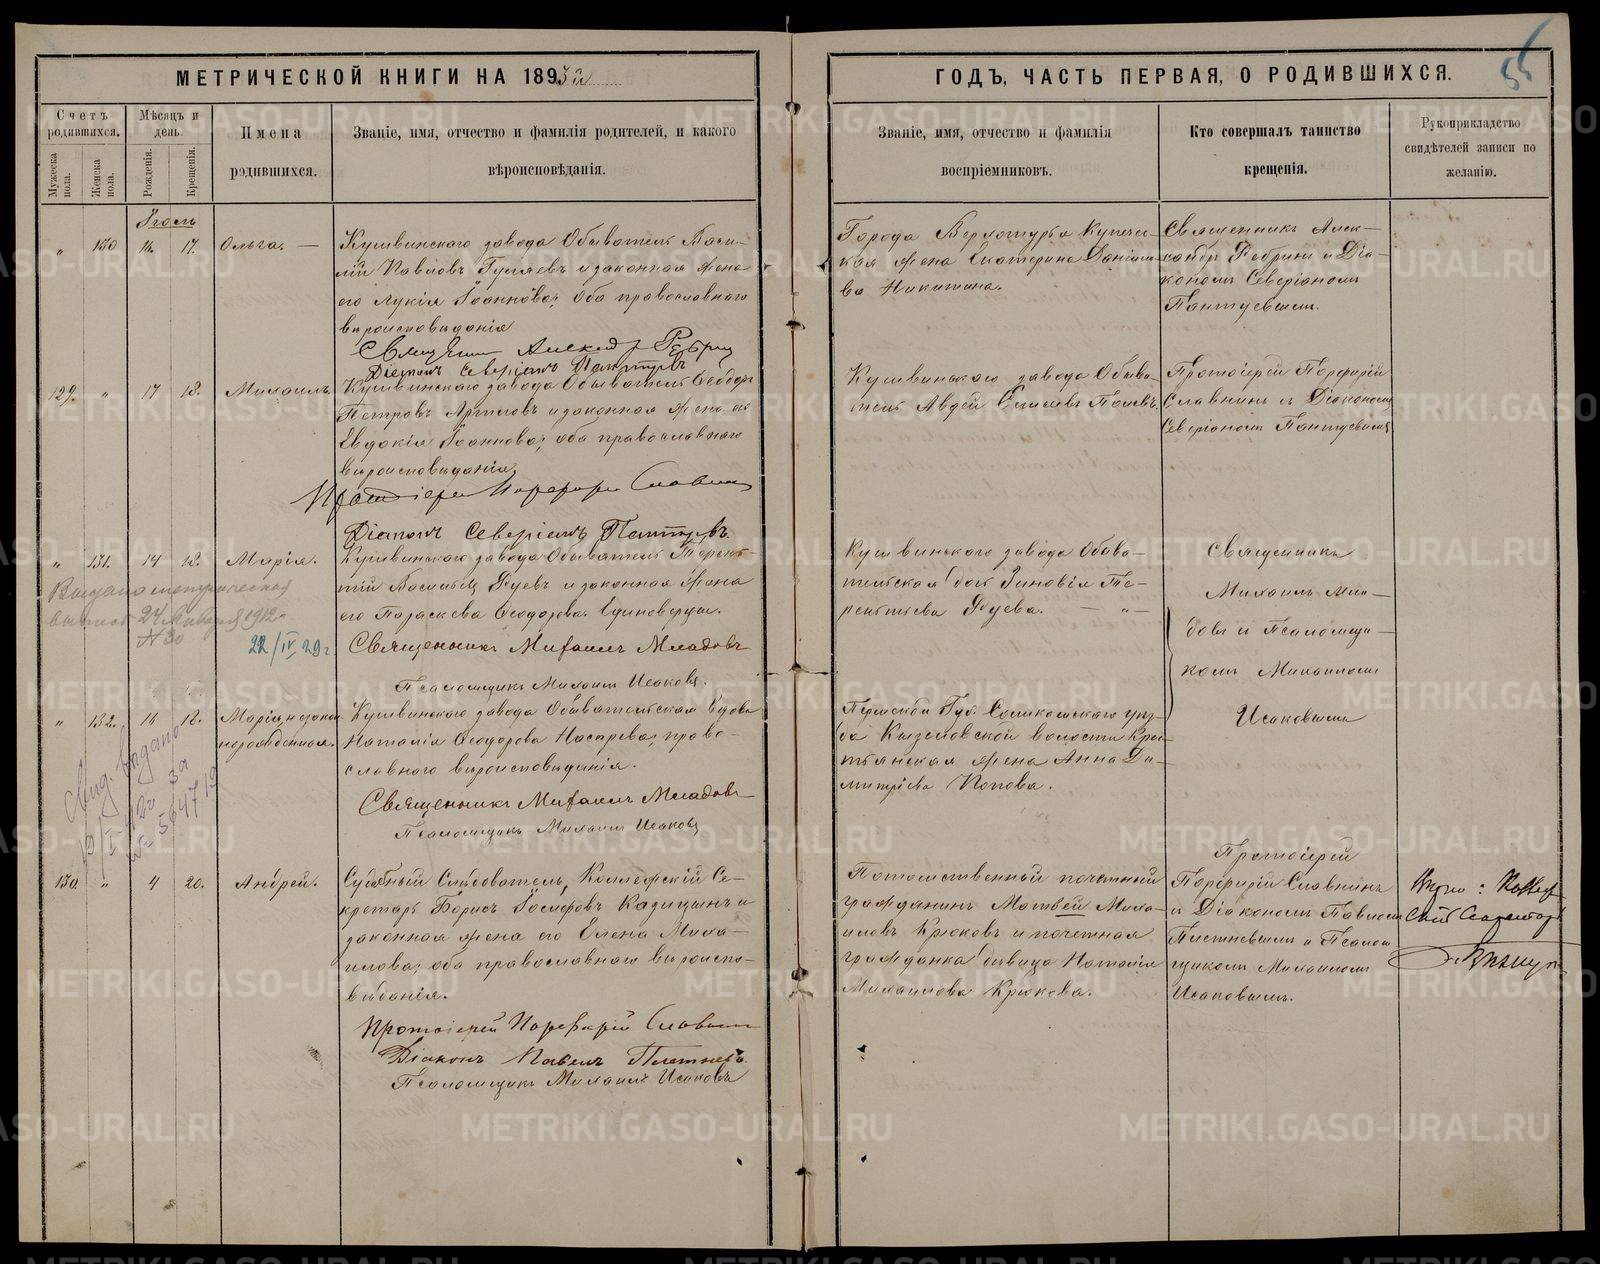 МЕТРИЧЕСКОЙ КНИГИ НА 1893й
ГОДЪ, ЧАСТЬ ПЕРВАЯ, О РОДИВШИХСЯ.
Счетъ родившихся.
Мужеска пола.
Женска пола.
Мѣсяцъ и день.
Рожденія.
Крещенія.
Имена родившихся.
Званіе, имя, отчество и фамилія родителей, и какого
вѣроисповѣданія.
Званіе, имя, отчество и фамилія
воспріемниковъ.
Кто совершалъ таинство
крещенія.
Рукоприкладство
свидѣтелей записи по
желанію.
" 130 14 17. Ольга. —
Кушвинскаго завода Обыватель Васи-
лій Павловъ Гуляевъ и законная жена
его Лукія Іоаннова; оба православнаго
вѣроисповѣданія
Города Верхотурья Купече-
ская жена Екатерина Даніило-
ва Никитина.
Священникъ Алек-
сандръ Ребринъ и Діа-
кономъ Северіаномъ
Пантуевымъ.
129. " 17 18. Михаилъ.
Кушвинскаго завода Обыватель Ѳеодоръ
Петровъ и законная жена его
Евдокія Іоаннова; оба православнаго
вѣроисповѣданія,
Протоіерей Порфирій Славнинъ
Діаконъ Северіанъ
Кушвинскаго завода Обыва-
тель Авдей Поповъ.
Протоіерей Порфирій
Славнинъ съ Діакономъ
Северіаномъ Пантуевымъ
" 131. 14 18. Марія.
Кушвинскаго завода Обыватель Терен-
тій и законная жена
его Параскева Ѳеодорова. Единоверцы.
Священникъ Михаилъ Младовъ
Псаломщикъ Михаилъ Исаковъ.
Кушвинскаго завода Обыва-
тельская дочь Зиновія Те-
рентьева
Священникъ
Михаилъ Мла-
довъ и Псаломщи-
комъ Михаиломъ
Исаковымъ
Выдана метрическая
выпись 24 Января 1912
N 30
22/IV 29 г.
" 132. 16 18. Марія, незакон-
норожденная.
Кушвинскаго завода Обывательская вдова
Наталія Ѳеодорова Назарова; право-
славнаго вѣроисповѣданія.
Священникъ Михаилъ Младовъ
Псаломщикъ Михаилъ Исаковъ
Пермской Губ. Соликамскаго уѣз-
да Кизеловской волости Крес-
тьянская жена Анна Ди-
митріева Попова.
Свид. выдано
за
130. " 4 20. Андрей.
Судебный Слѣдователь, Коллежскій Се-
кретарь Борисъ Іосифовъ Кадицынъ и
законная жена его Елена Миха-
илова; оба православнаго вѣроиспо-
вѣданія.
Протоіерей Порфирій Славнинъ
Діаконъ Павелъ Плетневъ
Псаломщикъ Михаилъ Исаковъ
Потомственный почетный
гражданинъ Матвей Миха-
иловъ Крюковъ и почетная
гражданка дѣвица Наталія
Михаилова Крюкова.
Протоіерей
Порфирій Славнинъ
съ Діакономъ Павломъ
Плетневымъ и Псалом-
щикомъ Михаиломъ
Исаковымъ.
METRIKI.GASO-URAL.RU